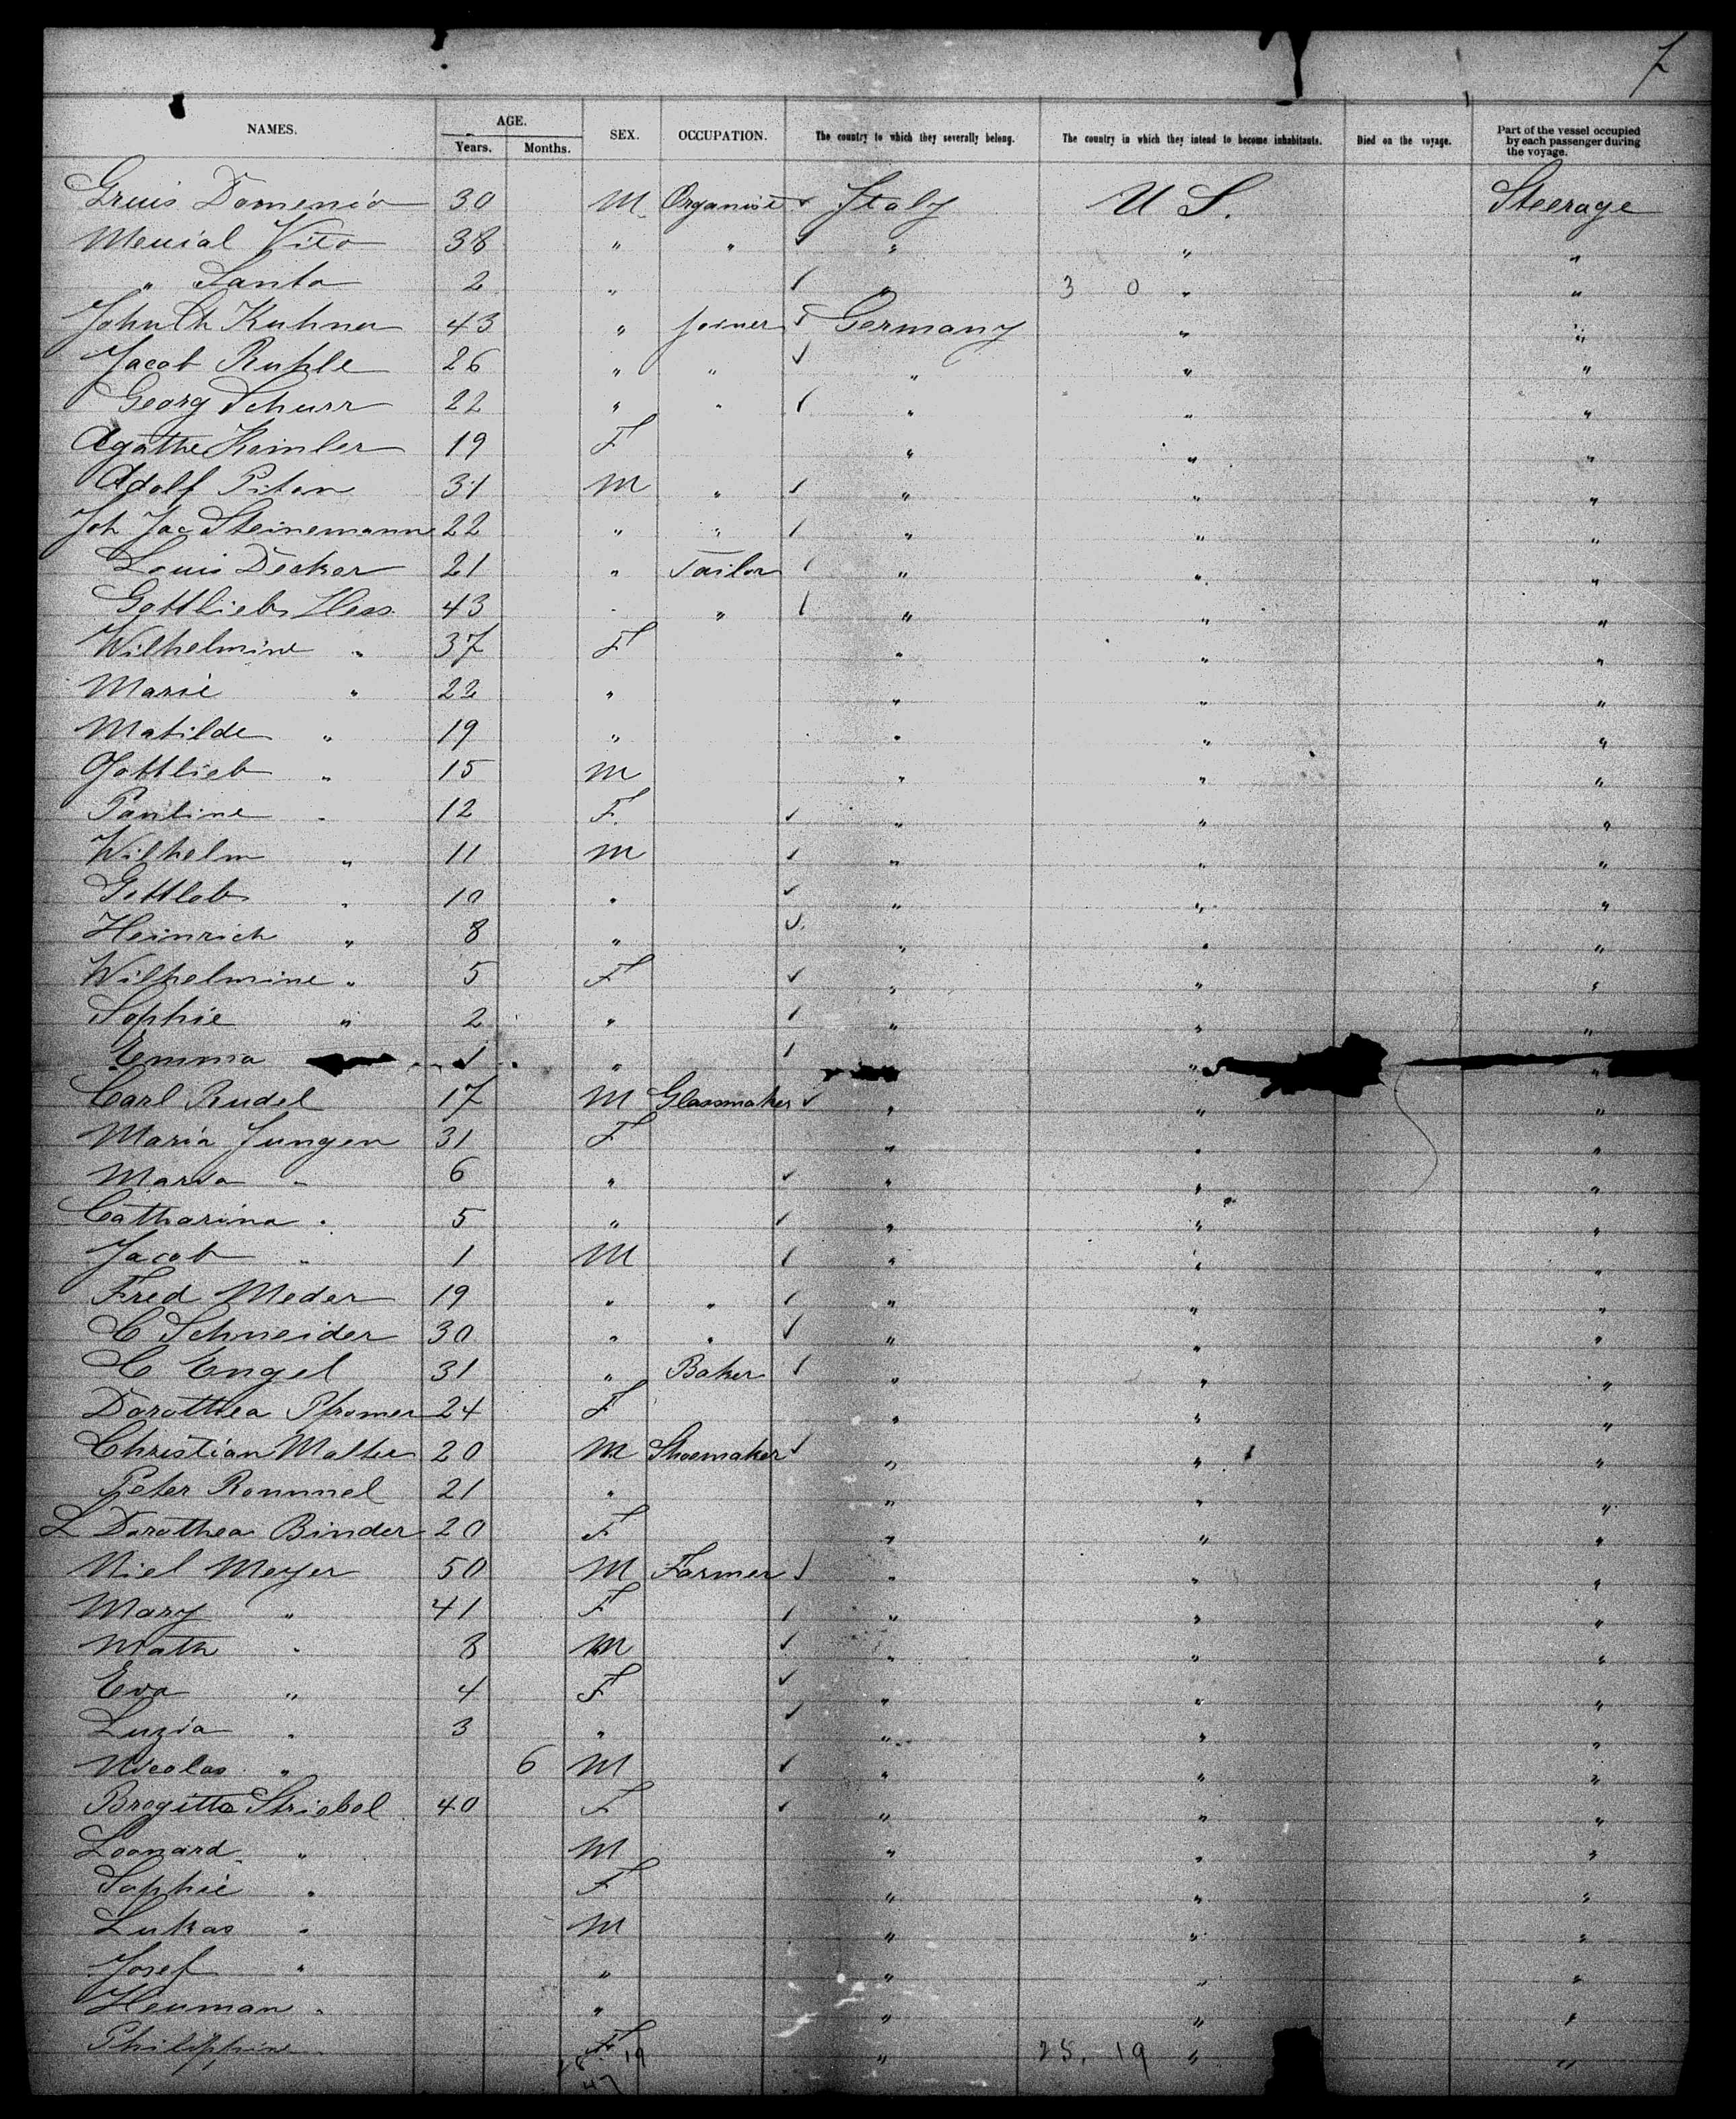 7
NAMES. AGE. SEX. OCCUPATION. The country to which they severally belong. The country in which they intend to become inhabitants. Died on the voyage. Part of the vessel occupied by each passenger during the voyage.
Years. Months.
Domenico 30 M Organist ✓ Italy U S. Steerage
Vito 38 " " ✓ " " "
" Santo 2 " ✓ " 3 0 " "
Kuhner 43 " Joiner ✓ Germany " "
Jacob Ruhle 26 " " ✓ " " "
Georg Schurr 22 " " ✓ " " "
Agathe Kemler 19 F " " "
Adolf Piton 31 M " ✓ " " "
Joh Jac Steinemann 22 " " ✓ " " "
Louis Decker 21 " Tailor ✓ " " "
Gottlieb Hess 43 " " ✓ " " "
Wilhelmine " 37 F " " "
Marie " 22 " " " "
Matilde " 19 " " " "
Gottlieb " 15 M " " "
Pauline " 12 F. ✓ " " "
Wilhelm " 11 M ✓ " " "
Gottlob " 10 " ✓ " " "
Heinrich " 8 " ✓ " " "
Wilhelmine " 5 F ✓ " " "
Sophie " 2 " ✓ " " "
Emma 1 " ✓ " "
Carl Rudel 17 M Glassmaker ✓ " " "
Maria Jungen 31 F " " "
Maria " 6 " ✓ " " "
Catharina " 5 " ✓ " " "
Jacob " 1 M ✓ " " "
Fred Meder 19 " " ✓ " " "
C Schneider 30 " " ✓ " " "
C Engel 31 " Baker ✓ " " "
Dorothea Pfromer 24 F " " "
Christian Walter 20 M Shoemaker ✓ " " "
Peter Rommel 21 " " " "
L Dorothea Binder 20 F " " "
Niel Meyer 50 M Farmer ✓ " " "
Mary " 41 F ✓ " " "
Math " 8 M ✓ " " "
Eva " 4 F ✓ " " "
Luzia " 3 " ✓ " " "
Nicolas " 6 M ✓ " " "
Bregitta Striebel 40 F ✓ " " "
Leonard " M " " "
Sophie " F " " "
Lukas " M " " "
Josef " " " " "
Heuman " " " " "
Philippine F " 25, 19 " "
28 19
47